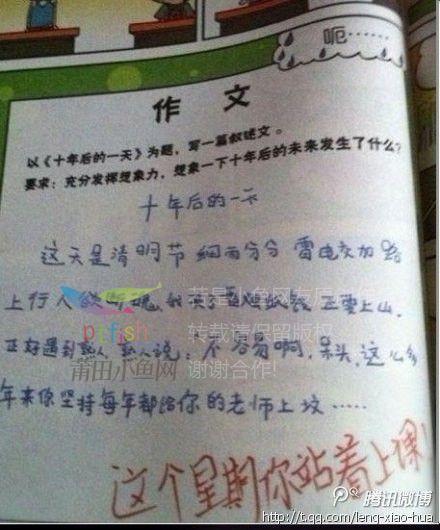 呃……
作 文
以《十年后的一天》为题，写一篇叙述文。
要求：充分发挥想象力，想象一下十年后的未来发生了什么？
十年后的一天
这天是清明节 细雨分分 雷电交加 路
上行人欲断魂, 我 正要上山,
正好遇到熟人, 熟人说：不容易啊, 呆头, 这么多
年来你坚持每年都给你的老师上坟……
这个星期你站着上课!
若是小鱼网友原
转载请保留版权
谢谢合作!
ptfish
莆田小鱼网
腾讯微博
http://t.qq.com/leng-xiao-hua